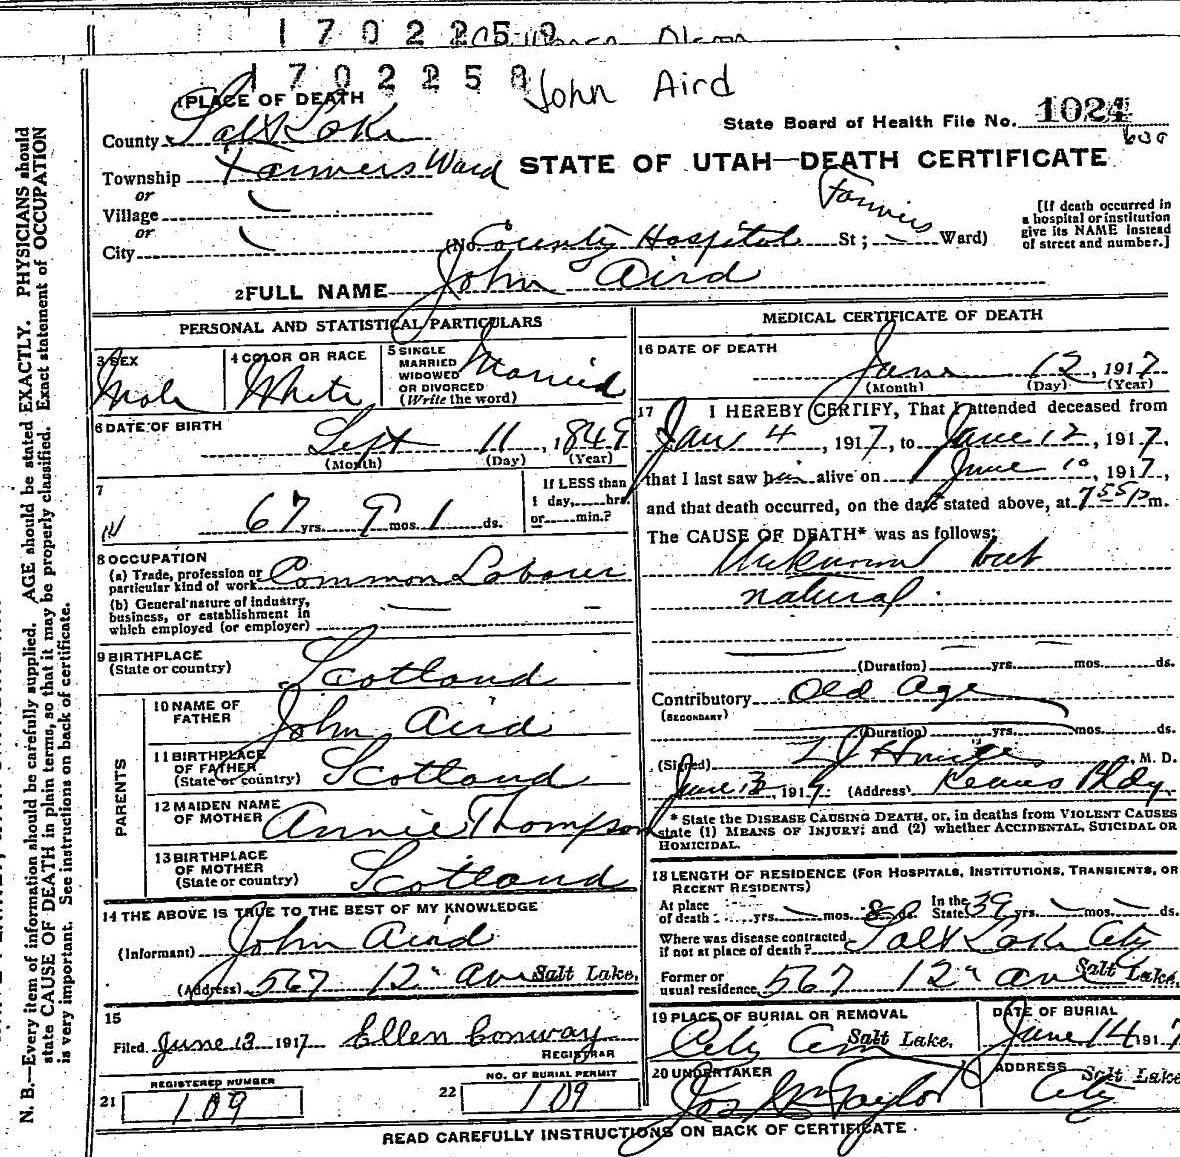 1702258
1702258 John Aird
1 PLACE OF DEATH
State Board of Health File No. 1024
County Salt Lake
Township Farmers Ward STATE OF UTAH—DEATH CERTIFICATE
or
Village
or
City
(No. County Hospital St; Farmers Ward)
[If death occurred in
a hospital or institution
give its NAME instead
of street and number.]
2 FULL NAME John Aird
PERSONAL AND STATISTICAL PARTICULARS
3 SEX
Male
4 COLOR OR RACE
White
5 SINGLE
MARRIED
WIDOWED
OR DIVORCED
(Write the word)
Married
6 DATE OF BIRTH
Sept 11, 1849
(Month) (Day) (Year)
7
67 yrs. 9 mos. 1 ds.
If LESS than
1 day,......hrs.
or......min.?
8 OCCUPATION
(a) Trade, profession or
particular kind of work Common Laborer
(b) General nature of industry,
business, or establishment in
which employed (or employer)
9 BIRTHPLACE
(State or country) Scotland
PARENTS
10 NAME OF
FATHER John Aird
11 BIRTHPLACE
OF FATHER
(State or country) Scotland
12 MAIDEN NAME
OF MOTHER Annie Thompson
13 BIRTHPLACE
OF MOTHER
(State or country) Scotland
14 THE ABOVE IS TRUE TO THE BEST OF MY KNOWLEDGE
(Informant) John Aird
(Address) 567 12" Ave Salt Lake.
15
Filed June 13 1917 Ellen Conway
REGISTRAR
21 REGISTERED NUMBER
109
22 NO. OF BURIAL PERMIT
109
MEDICAL CERTIFICATE OF DEATH
16 DATE OF DEATH
June 12, 1917
(Month) (Day) (Year)
17 I HEREBY CERTIFY, That I attended deceased from
4, 1917, to June 12, 1917,
that I last saw him alive on June 10, 1917,
and that death occurred, on the date stated above, at 7 55 p m.
The CAUSE OF DEATH* was as follows:
Unknown but
natural
(Duration) yrs. mos. ds.
Contributory Old Age
(SECONDARY)
(Duration) yrs. mos. ds.
(Signed) M. D.
June 13, 1917 (Address) Kearns Bldg.
* State the DISEASE CAUSING DEATH, or, in deaths from VIOLENT CAUSES
state (1) MEANS OF INJURY; and (2) whether ACCIDENTAL, SUICIDAL OR
HOMICIDAL.
18 LENGTH OF RESIDENCE (FOR HOSPITALS, INSTITUTIONS, TRANSIENTS, OR
RECENT RESIDENTS)
At place
of death yrs. mos. 8 ds. In the
State 39 yrs. mos. ds.
Where was disease contracted
if not at place of death? Salt Lake City
Former or
usual residence 567 12" Ave Salt Lake.
19 PLACE OF BURIAL OR REMOVAL
City Cem Salt Lake.
DATE OF BURIAL
June 14 1917
20 UNDERTAKER
Jos Taylor
ADDRESS Salt Lake
City
READ CAREFULLY INSTRUCTIONS ON BACK OF CERTIFICATE.
N. B.—Every item of information should be carefully supplied. AGE should be stated EXACTLY. PHYSICIANS should
state CAUSE OF DEATH in plain terms, so that it may be properly classified. Exact statement of OCCUPATION
is very important. See instructions on back of certificate.